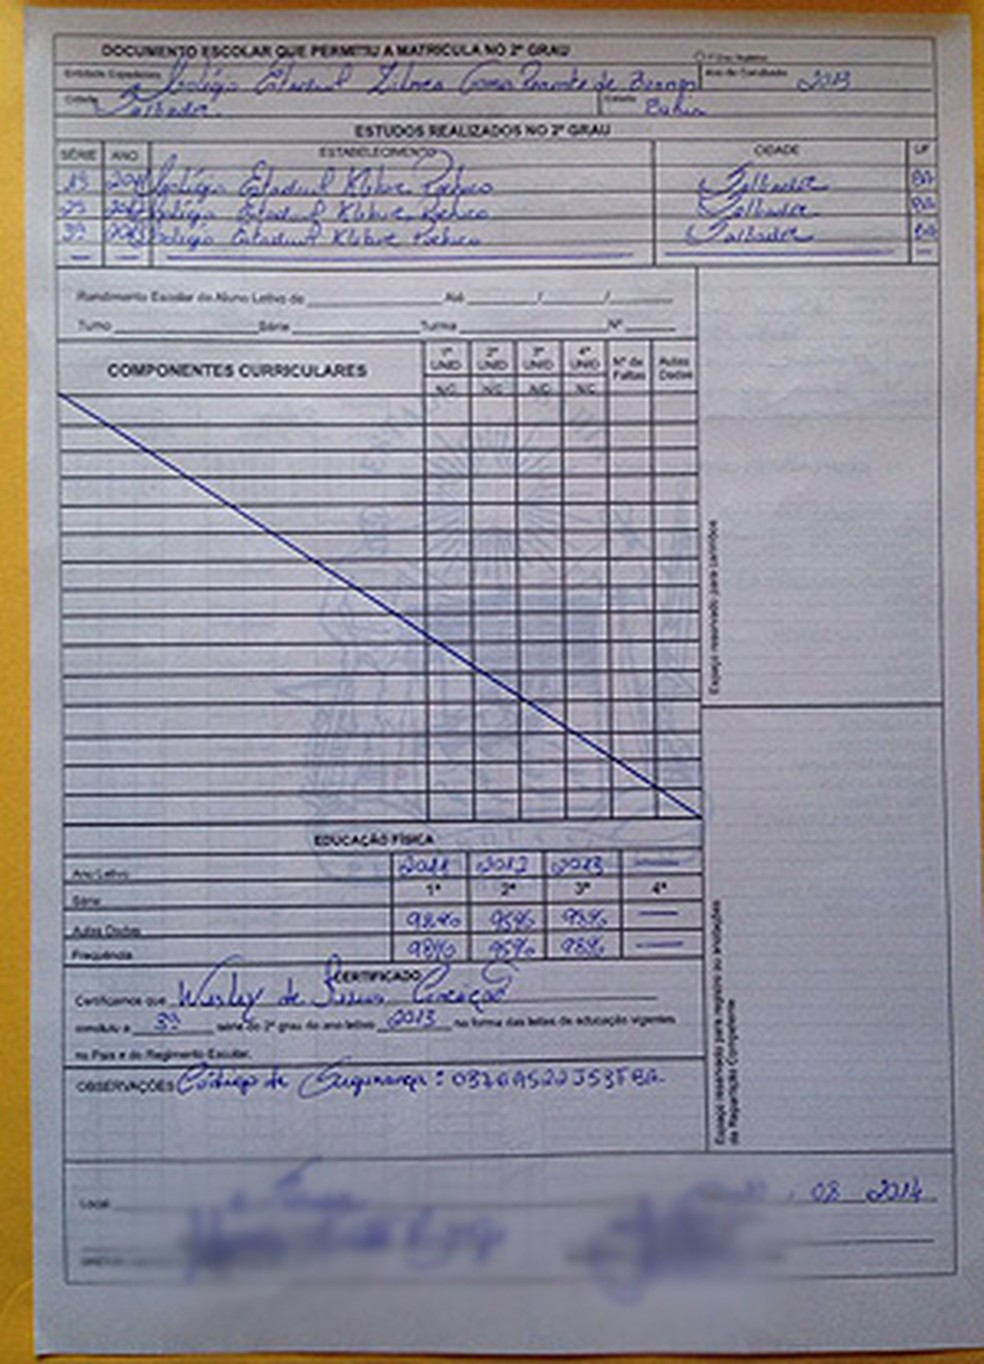 DOCUMENTO ESCOLAR QUE PERMITIU A MATRICULA NO 2º GRAU
Entidade Expedidora Colégio Estadual de Ano de Conclusão 2013
Cidade Salvador Estado Bahia
ESTUDOS REALIZADOS NO 2º GRAU
SÉRIE ANO ESTABELECIMENTO CIDADE UF
1ª 2011 Colégio Estadual Kleber Pacheco Salvador BA
2ª 2012 Colégio Estadual Kleber Pacheco Salvador BA
3ª 2013 Colégio Estadual Kleber Pacheco Salvador BA
Rendimento Escolar do Aluno Letivo de Até / /
Turno Série Turma Nº
COMPONENTES CURRICULARES 1ª UNID 2ª UNID 3ª UNID 4ª UNID Nº de Faltas Aulas Dadas
N/C N/C N/C N/C
Espaço reservado para
EDUCAÇÃO FÍSICA
Ano Letivo 2011 2012 2013
Série 1ª 2ª 3ª 4ª
Aulas Dadas 98% 95% 98%
Frequência 98% 95% 98%
CERTIFICADO
Certificamos que Wesley de Jesus Conceição
concluiu a 3ª série do 2º grau do ano letivo 2013 na forma das leis de educação vigentes
no País e do Regimento Escolar.
OBSERVAÇÕES Código de Segurança:
Espaço reservado para registro ou anotações
da Repartição Competente
Local 08 2014
DIRETOR